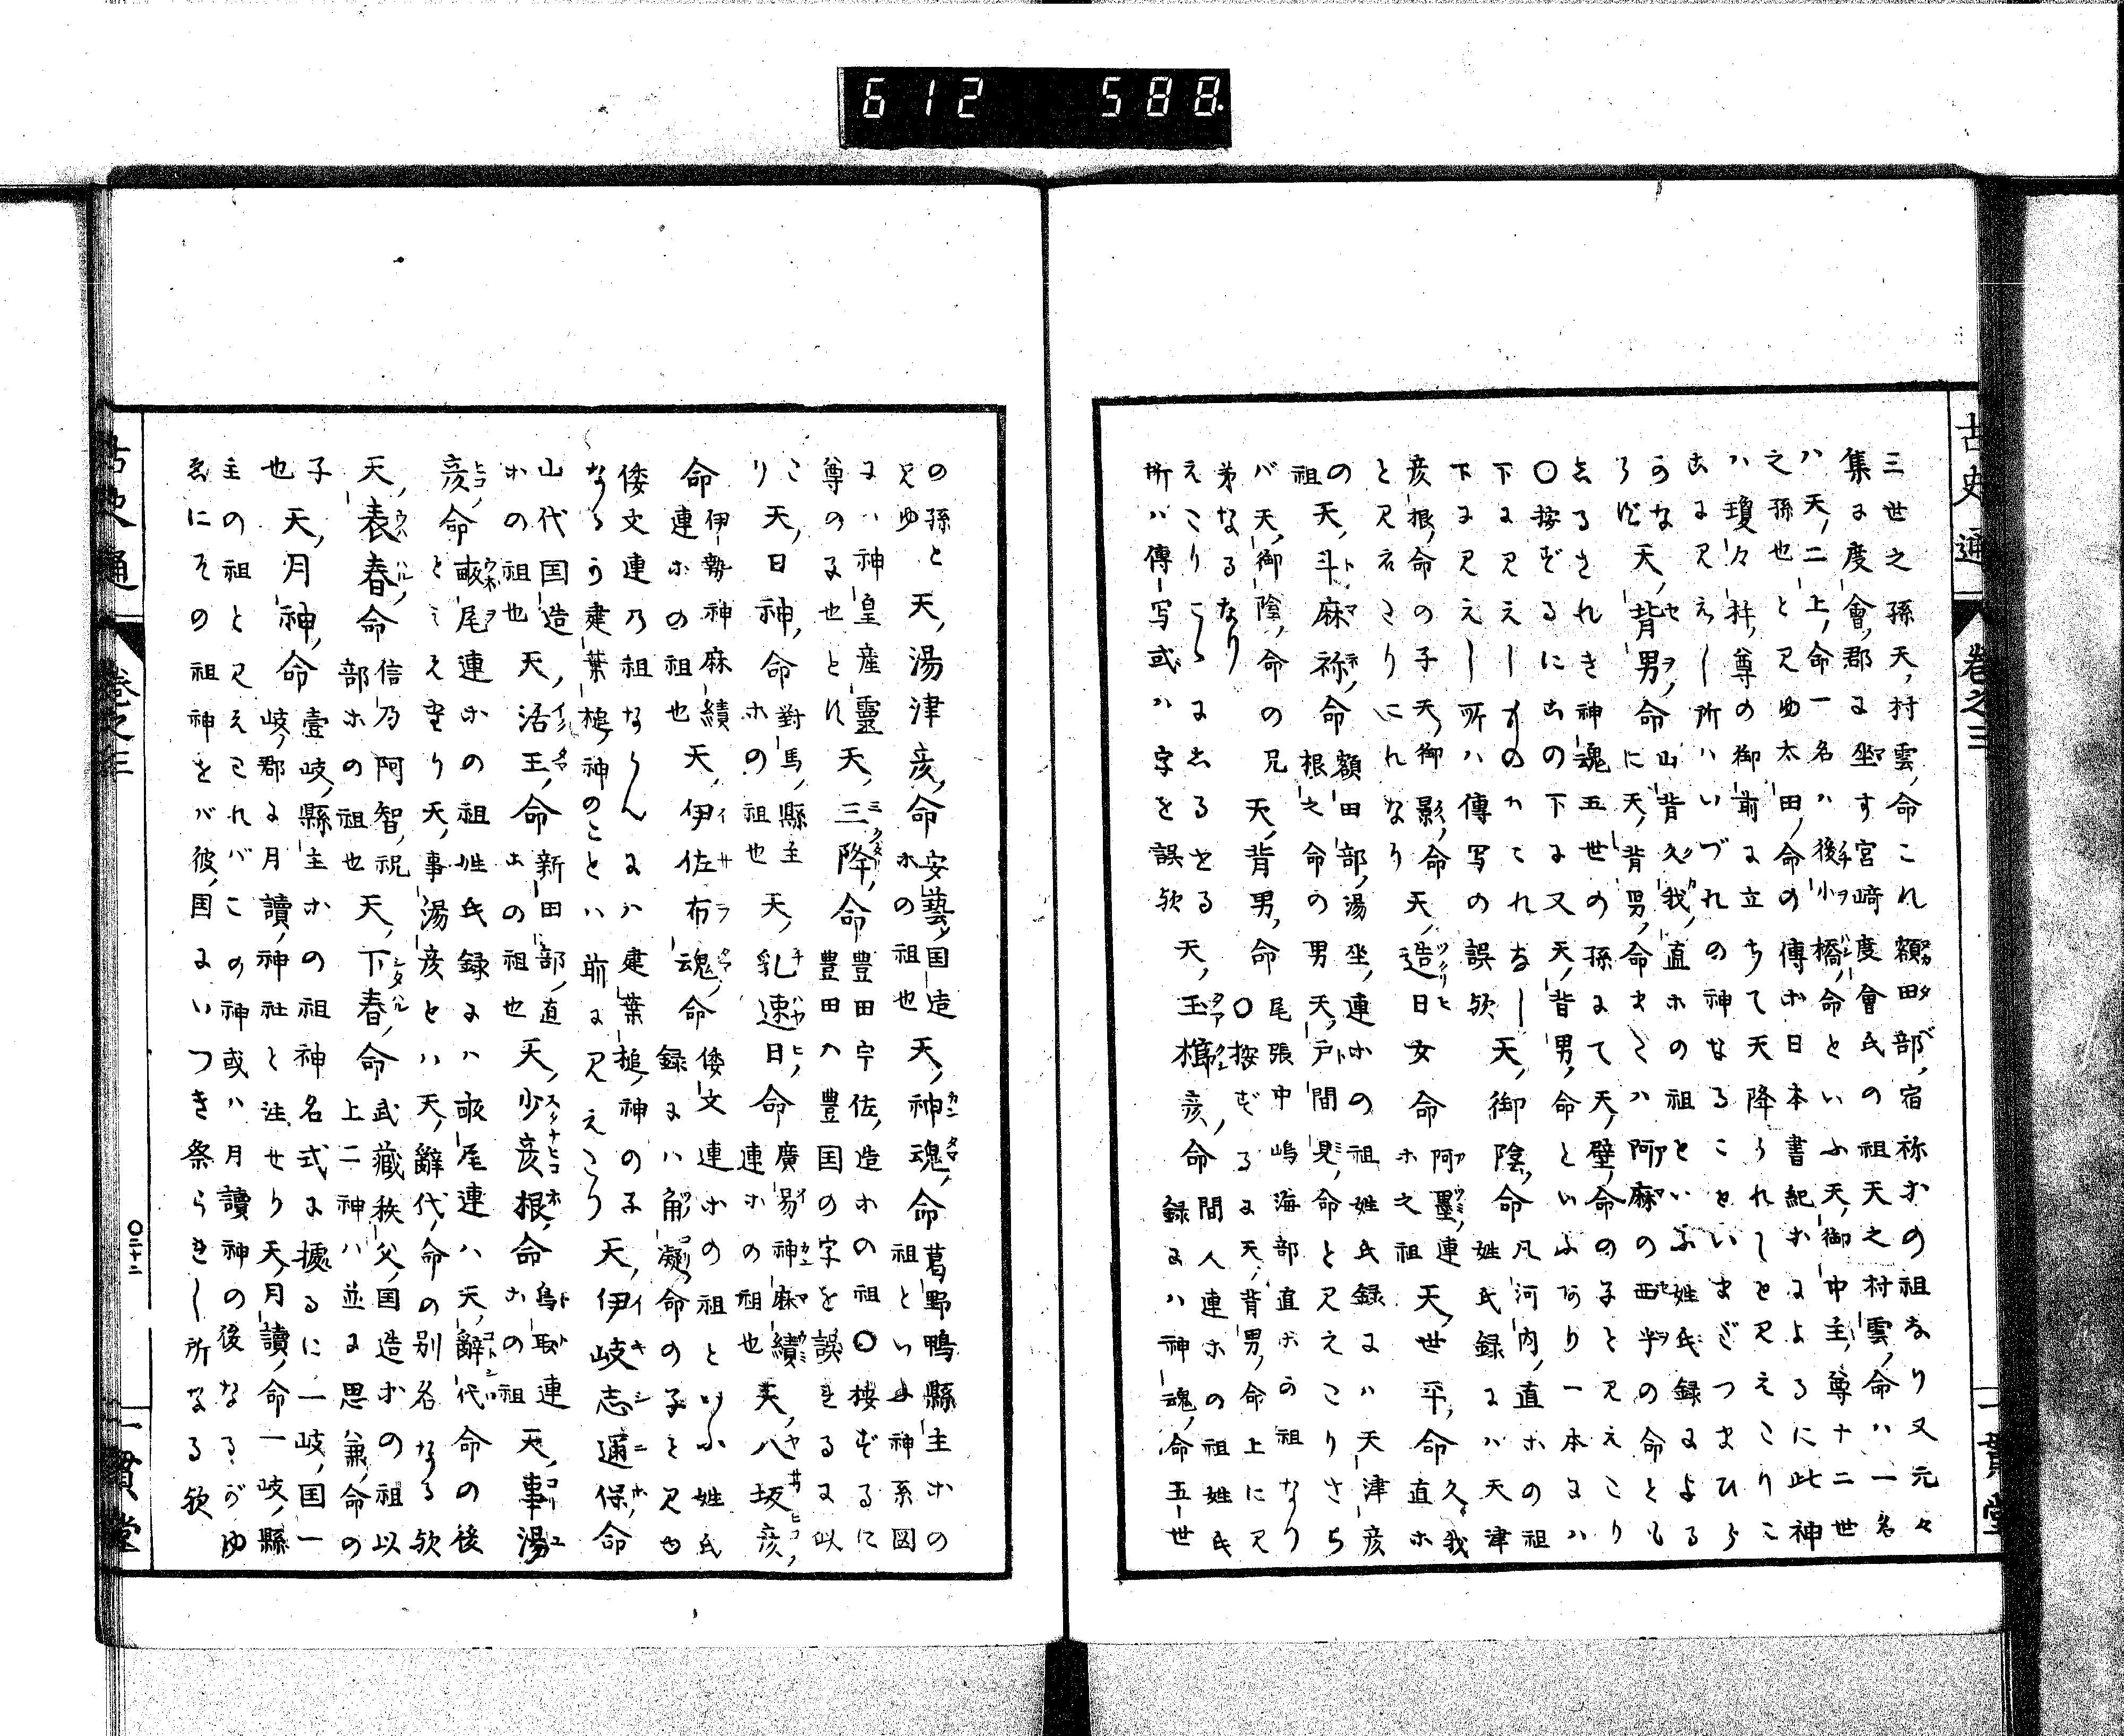 612 588
古史通
巻之三
一貫堂
三世之孫天村雲命これ額田部宿祢ホの祖なり又元々
集に度會郡に坐す宮﨑度會氏の祖天之村雲命ハ一名
ハ天二上命一名ハ後小橋命といふ天御中主尊十二世
之孫也と見ゆ太田命の傳ホ日本書紀ホによるに此神
ハ瓊々杵尊の御前に立ちて天降られしと見えたりこ
こに見えし所ハいづれの神なることをいまだつまひら
かな
らず天背男命山背久我直ホの祖といふ姓氏録による
に天背男命またハ阿麻の西乎の命とも
しるされき神魂五世の孫にて天壁命の子と見えたり
〇按ずるにこの下に又天背男命といふあり一本にハ
下に見えしものハこれなし
下に見えし所ハ傳写の誤欤天御陰命凡河内直ホの祖
姓氏録にハ天津
彦根命の子天御影命天造日女命阿曇連
ホ之祖天世平命久我
直ホ
と見えたりにれなり
の天斗麻祢命額田部湯坐連ホの祖姓氏録にハ天津彦
祖根之命の男天戸間見命と見えたりさら
バ天御陰命の兄天背男命尾張中嶋海部直ホの祖なり
弟なるなり〇按ずるに天背男命上に見
えたりこゝにしるせる天玉櫛彦命間人連ホの祖姓氏
所ハ傳写或ハ字を誤欤録にハ神魂命五世
の孫と
見ゆ天湯津彦命安藝国造
ホの祖也天神魂命葛野鴨縣主ホの
祖といふ神系図
にハ神皇産靈
尊の子也とす天三降命豊田宇佐造ホの祖〇按ずるに
豊田ハ豊国の字を誤まるに似
たり天日神命對馬縣主
ホの祖也天乳速日命廣湯神麻績
連ホの祖也天八坂彦
命伊勢神麻績
連ホの祖也天伊佐布魂命倭文連ホの祖といふ姓氏
録にハ角凝命の子と見ゆ
倭文連乃祖ならんにハ建葉槌神の子
なるか建葉槌神のことハ前に見えたり天伊岐志邇保命
山代国造
ホの祖也天活玉命新田部直
ホの祖也天少彦根命鳥取連
ホの祖天事湯
彦命畝尾連ホの祖姓氏録にハ畝尾連ハ天辭代命の後
とミえたり天事湯彦とハ天辭代命の別名なる欤
天表春命信乃阿智祝
部ホの祖也天下春命武藏秩父国造ホの祖以
上二神ハ並に思兼命の
子
也天月神命壹岐縣主ホの祖神名式に據るに一岐国一
岐郡に月讀神社と注せり天月讀命一岐縣
主の祖と見えたればこの神或ハ月讀神の後なるがゆ
ゑにその祖神をバ彼国にいつき祭られし所なる欤
古史通
巻之三
〇二十二
一貫堂